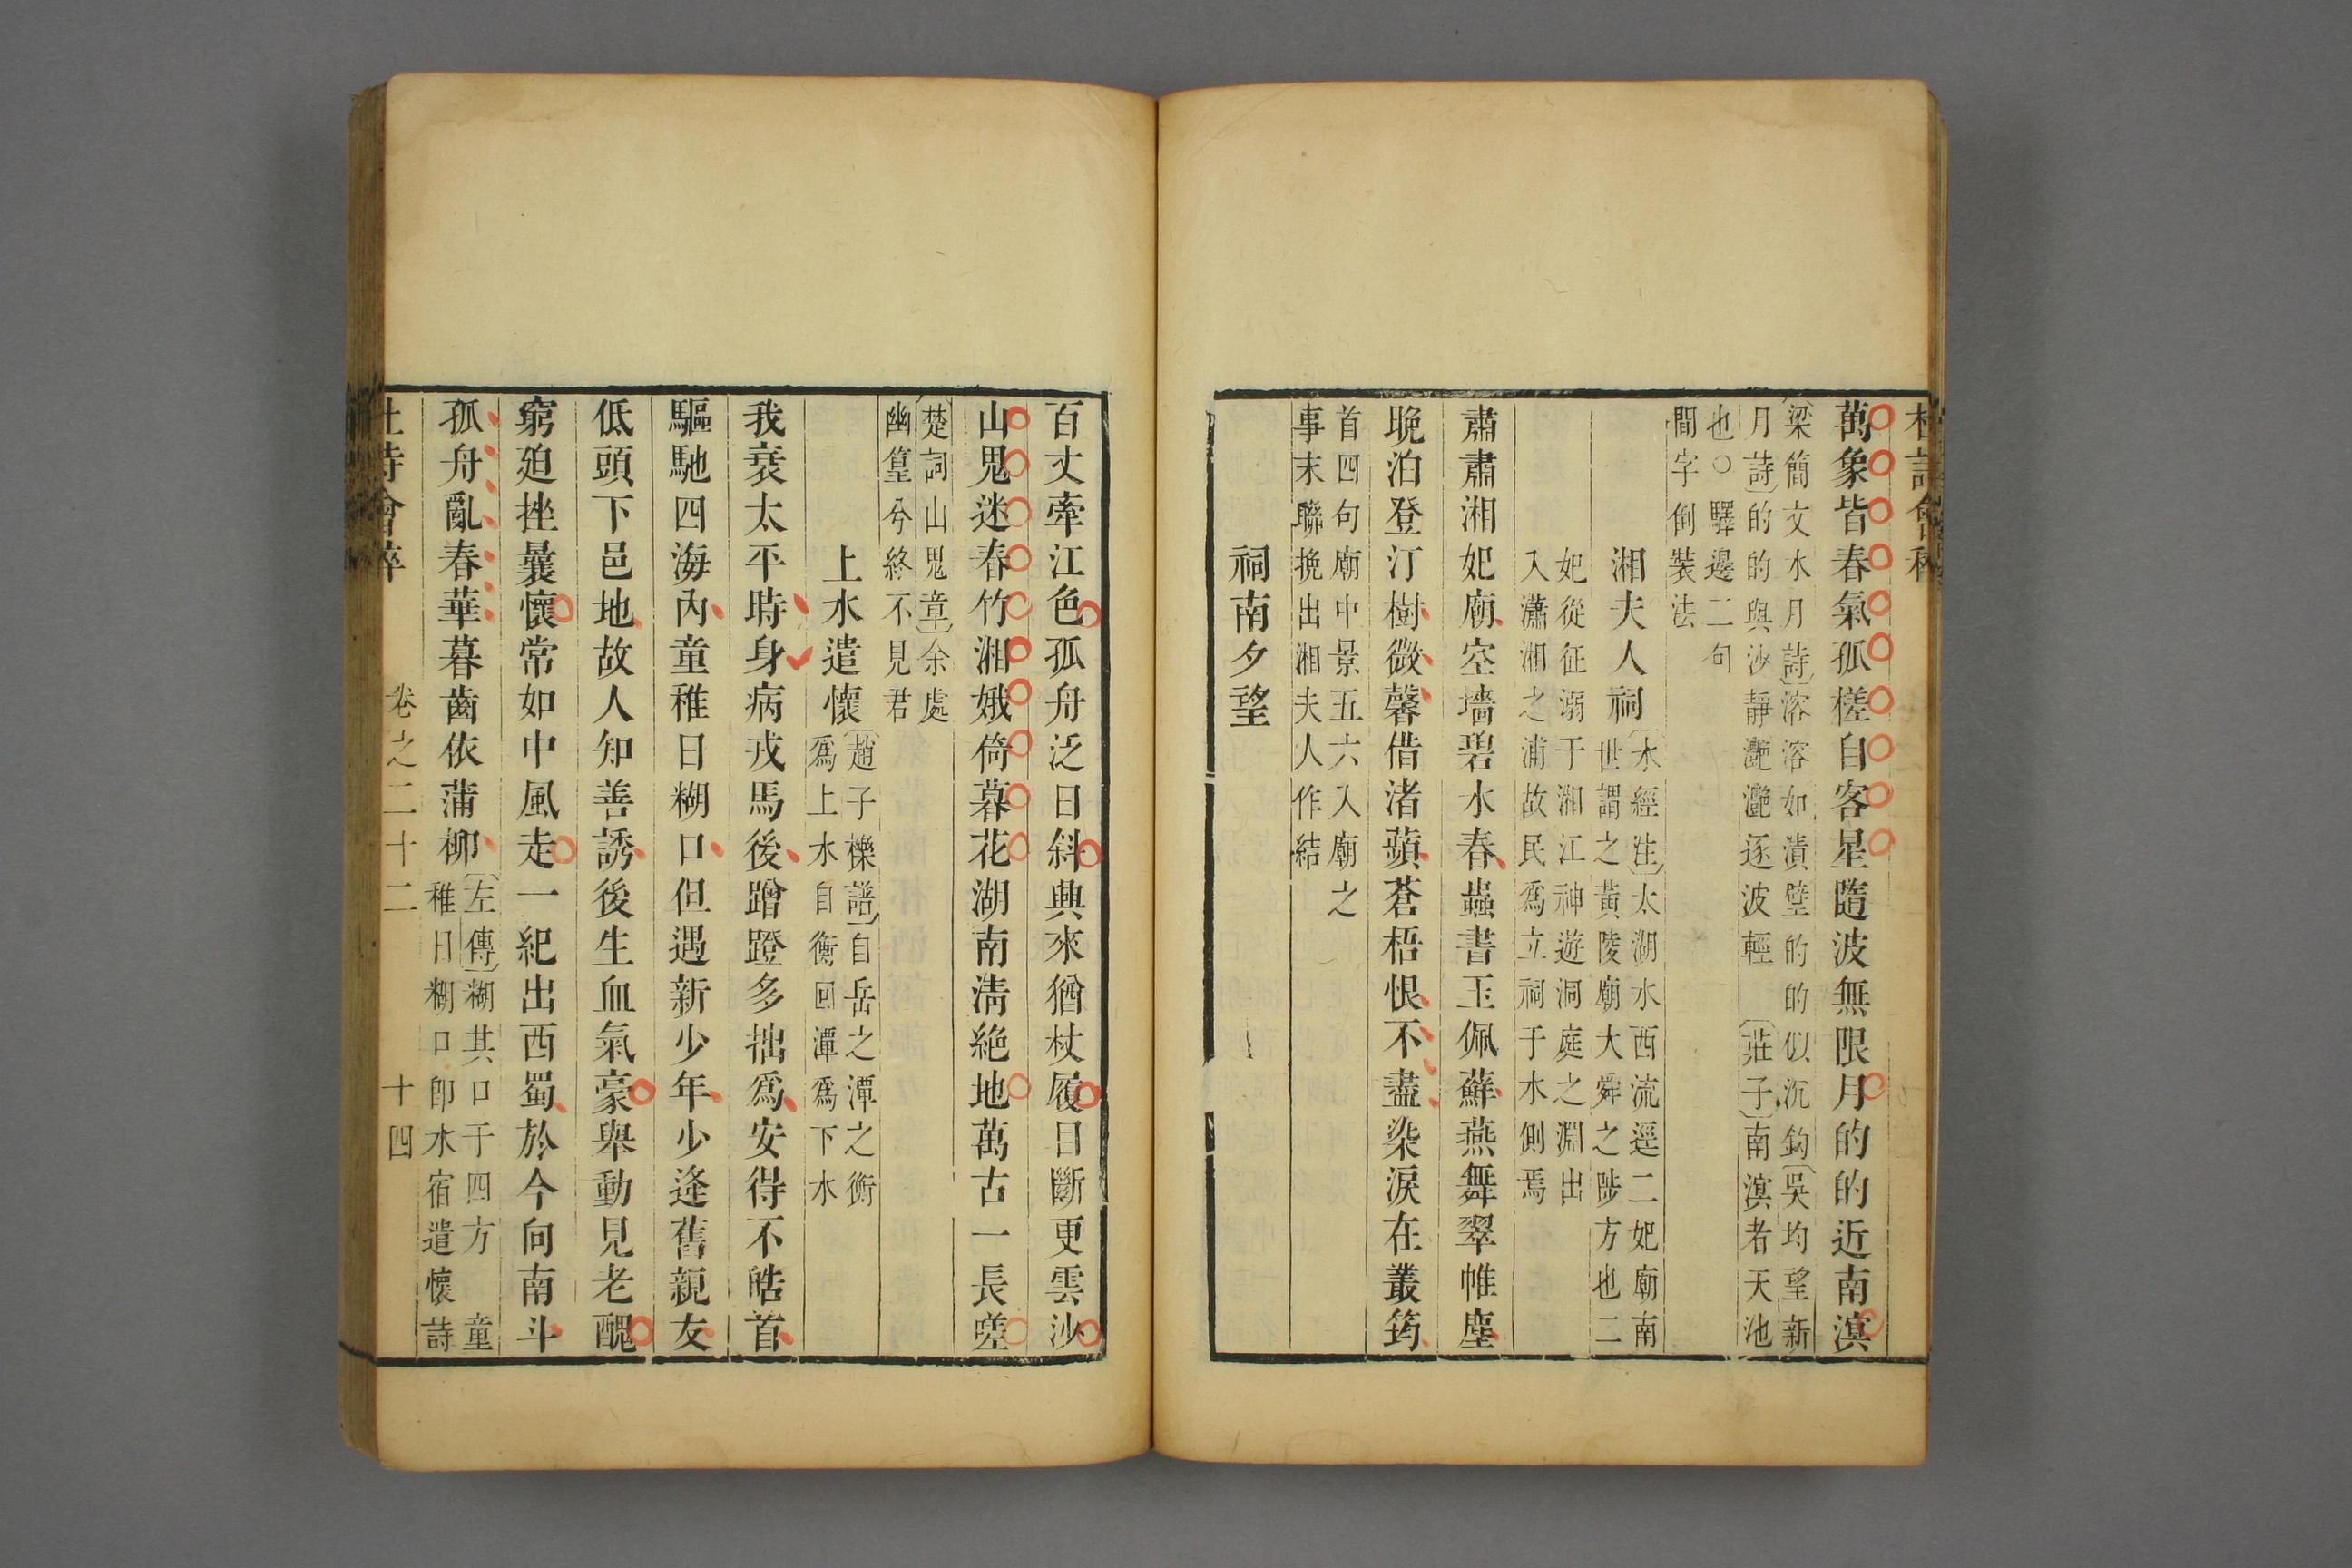 萬象皆春氣孤槎自客星隨波無限月的的近南溟
〔梁簡文水月詩〕溶溶如漬璧的的似沉鈎〔吳均望新
月詩〕的的與沙靜灔灔逐波輕　〔莊子〕南溟者天池
也○驛邊二句
間字倒裝法
湘夫人祠
〔水經注〕太湖水西流逕二妃廟南
世謂之黃陵廟大舜之陟方也二
妃從征溺于湘江神遊洞庭之淵出
入瀟湘之浦故民爲立祠于水側焉
肅肅湘妃廟空墻碧水春蟲書玉佩蘚燕舞翠帷塵
晚泊登汀樹微馨借渚蘋蒼梧恨不盡染淚在叢筠
首四句廟中景五六入廟之
事末聯挽出湘夫人作結
祠南夕望
百丈牽江色孤舟泛日斜興來猶杖屨目斷更雲沙
山鬼迷春竹湘娥倚暮花湖南淸絶地萬古一長嗟
〔楚詞山鬼章〕余處
幽篁兮終不見君
上水遣懷
〔趙子櫟譜〕自岳之潭之衡
爲上水自衡回潭爲下水
我衰太平時身病戎馬後蹭蹬多拙爲安得不皓首
驅馳四海內童稚日糊口但遇新少年少逢舊親友
低頭下邑地故人知善誘後生血氣豪舉動見老醜
窮廹挫曩懷常如中風走一紀出西蜀於今向南斗
孤舟亂春華暮齒依蒲柳
〔左傳〕糊其口于四方　童
稚日糊口卽水宿遣懷詩
杜詩會稡
卷之二十二
十四